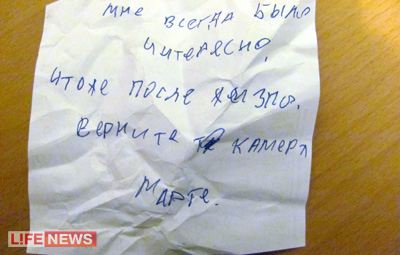 мне всегда было
интересно,
что же после жизни.
верните камеру
Марте.
LIFENEWS